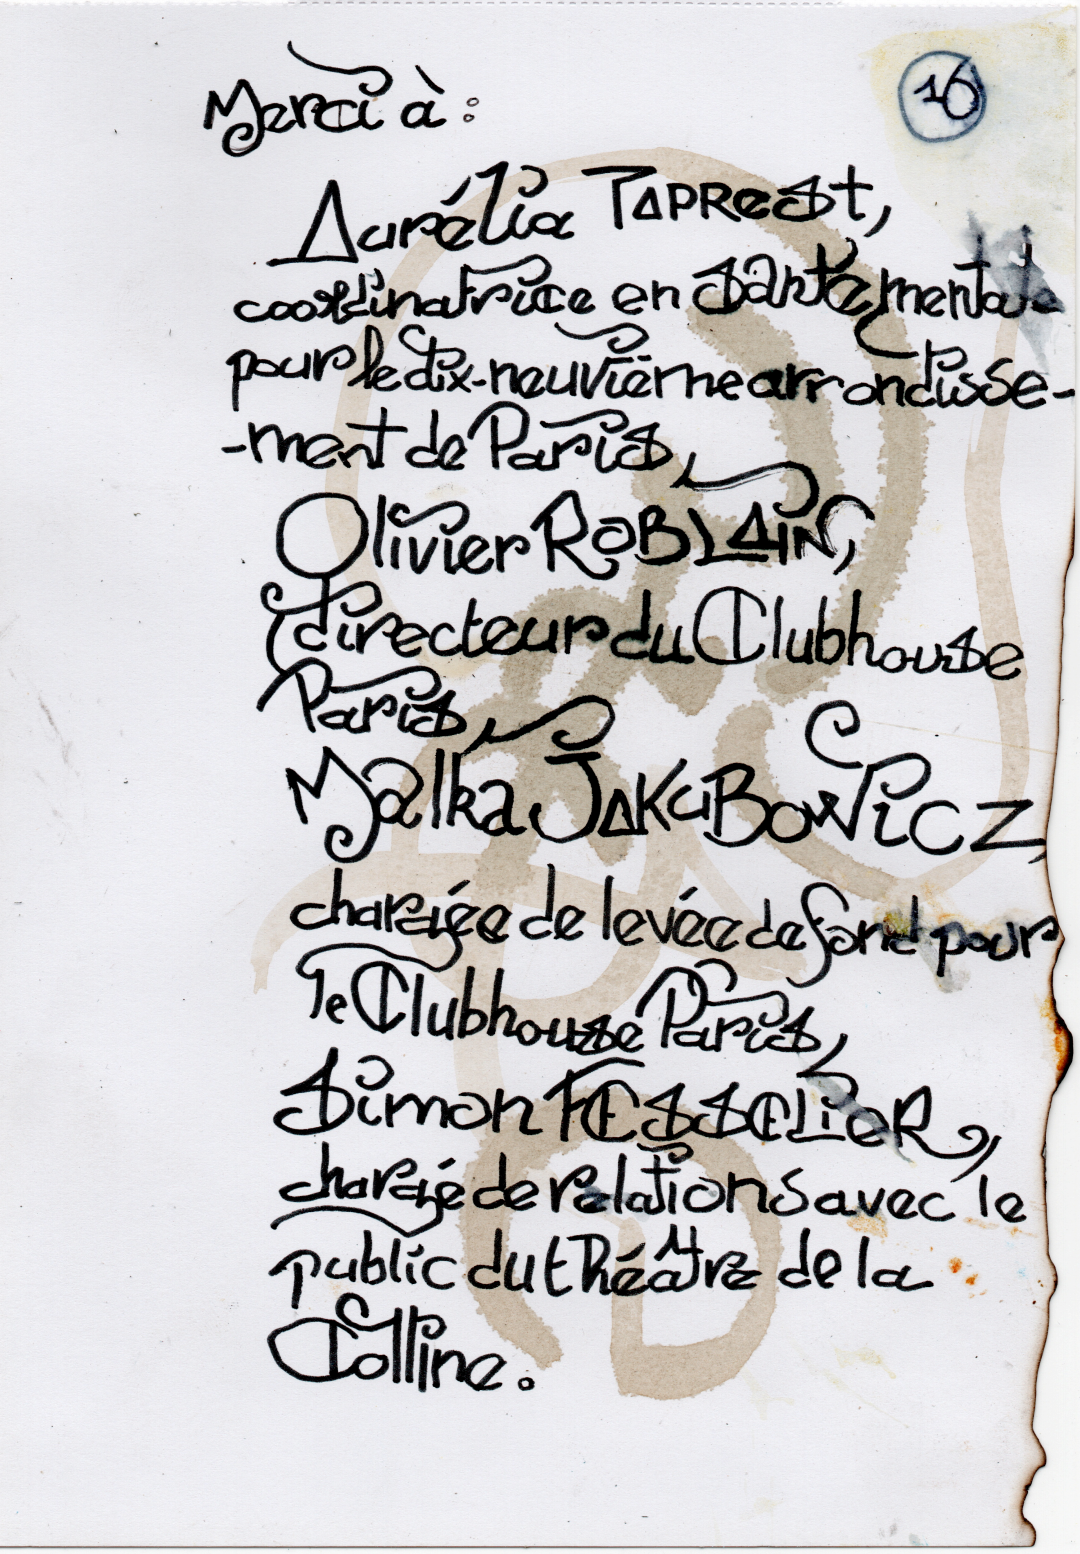 16
Merci à :
Aurélia TAPREST,
coordinatrice en santé mentale
pour le dix-neuvième arrondisse-
-ment de Paris,
Olivier ROBLAIN,
directeur du Clubhouse
Paris,
Malka JAKUBOWICZ,
chargée de levée de fond pour
le Clubhouse Paris,
Simon FESSELIER,
chargé de relations avec le
public du théâtre de la
Colline.